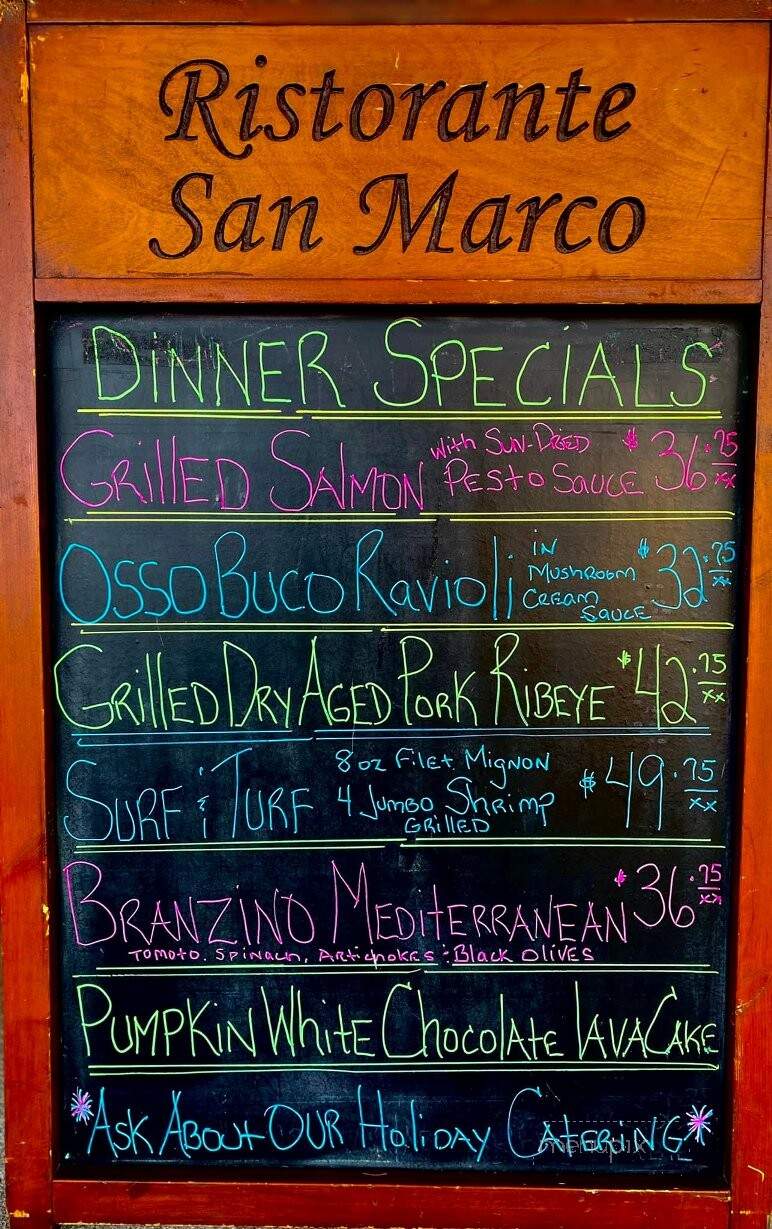 Ristorante
San Marco
DINNER SPECIALS
GRILLED SALMON with SUN-DRIED PESTO SAUCE $36.75/xx
OSSO BUCO Ravioli IN MUSHROOM CREAM SAUCE $32.75/xx
GRILLED DRY AGED PORK RIBEYE $42.75/xx
SURF & TURF 8oz Filet Mignon 4 Jumbo Shrimp GRILLED $49.75/xx
BRANZINO MEDITERRANEAN $36.75/xx
TOMATO. SPINACH, ARTICHOKES & BLACK OLIVES
PUMPKIN White Chocolate LAVA CAKE
*ASK ABOUT OUR HOLIDAY CATERING*
menupix